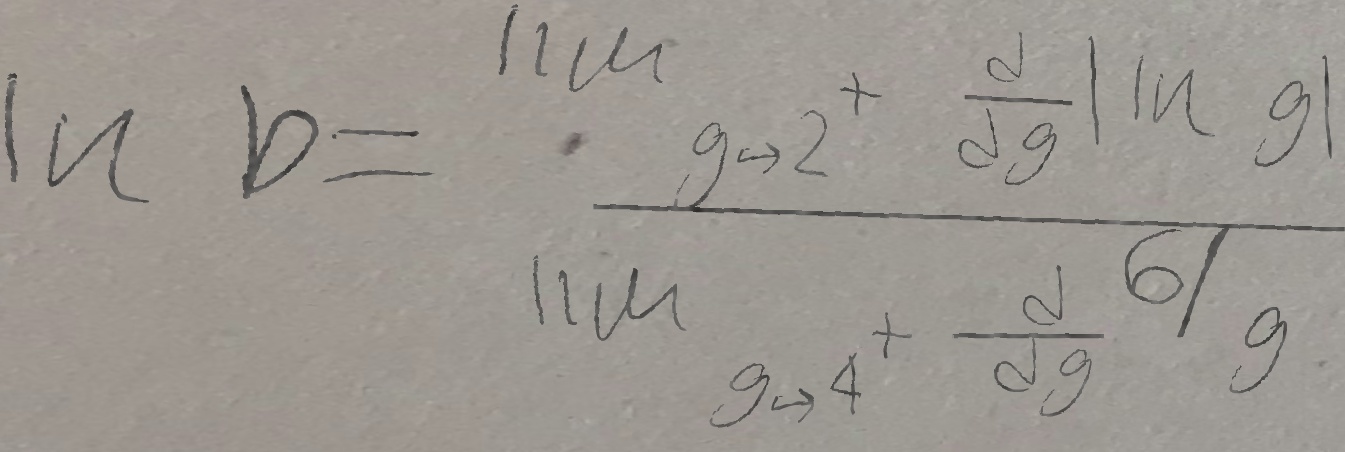 ln b = \frac{\lim_{g \to 2^+} \frac{d}{dg} |\ln g|}{\lim_{g \to 4^+} \frac{d}{dg} 6/g}